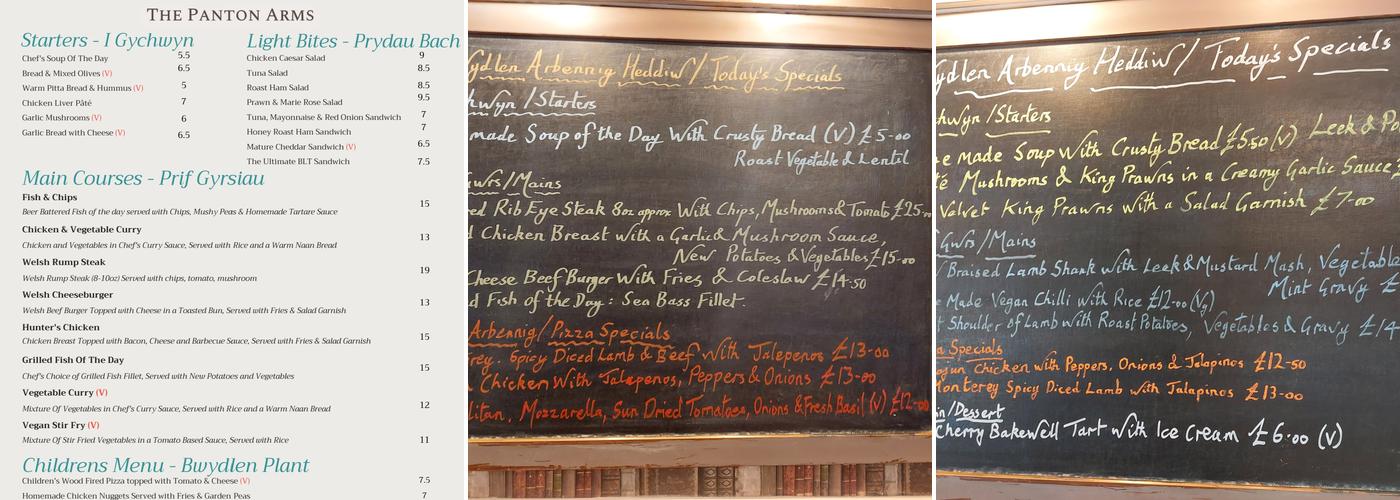 THE PANTON ARMS
Starters - I Gychwyn
Chef's Soup Of The Day 5.5
Bread & Mixed Olives (V) 6.5
Warm Pitta Bread & Hummus (V) 5
Chicken Liver Pâté 7
Garlic Mushrooms (V) 6
Garlic Bread with Cheese (V) 6.5
Light Bites - Prydau Bach
Chicken Caesar Salad 9
Tuna Salad 8.5
Roast Ham Salad 8.5
Prawn & Marie Rose Salad 9.5
Tuna, Mayonnaise & Red Onion Sandwich 7
Honey Roast Ham Sandwich 7
Mature Cheddar Sandwich (V) 6.5
The Ultimate BLT Sandwich 7.5
Main Courses - Prif Gyrsiau
Fish & Chips
Beer Battered Fish of the day served with Chips, Mushy Peas & Homemade Tartare Sauce 15
Chicken & Vegetable Curry
Chicken and Vegetables in Chef's Curry Sauce, Served with Rice and a Warm Naan Bread 13
Welsh Rump Steak
Welsh Rump Steak (8-10oz) Served with chips, tomato, mushroom 19
Welsh Cheeseburger
Welsh Beef Burger Topped with Cheese in a Toasted Bun, Served with Fries & Salad Garnish 13
Hunter's Chicken
Chicken Breast Topped with Bacon, Cheese and Barbecue Sauce, Served with Fries & Salad Garnish 15
Grilled Fish Of The Day
Chef's Choice of Grilled Fish Fillet, Served with New Potatoes and Vegetables 15
Vegetable Curry (V)
Mixture Of Vegetables in Chef's Curry Sauce, Served with Rice and a Warm Naan Bread 12
Vegan Stir Fry (V)
Mixture Of Stir Fried Vegetables in a Tomato Based Sauce, Served with Rice 11
Childrens Menu - Bwydlen Plant
Children's Wood Fired Pizza topped with Tomato & Cheese (V) 7.5
Homemade Chicken Nuggets Served with Fries & Garden Peas 7
ydlen Arbennig Heddiw / Today's Specials
hwyn / Starters
made Soup of the Day With Crusty Bread (V) £5-00
Roast Vegetable & Lentil
Gwrs / Mains
ed Rib Eye Steak 8oz approx With Chips, Mushrooms & Tomato £25-
d Chicken Breast with a Garlic & Mushroom Sauce,
New Potatoes & Vegetables £15-00
Cheese Beef Burger With Fries & Coleslaw £14-50
d Fish of the Day: Sea Bass Fillet.
Arbennig / Pizza Specials
rey. Spicy Diced Lamb & Beef with Jalepenos £13-00
Chicken With Jalapenos, Peppers & Onions £13-00
litan, Mozzarella, Sun Dried Tomatoes, Onions & Fresh Basil (V) £12-00
ydlen Arbennig Heddiw / Today's Specials
hwyn / Starters
e made Soup with Crusty Bread £5.50 (V) Leek & Po
té Mushrooms & King Prawns in a Creamy Garlic Sauce £
Velvet King Prawns with a Salad Garnish £7-00
Gwrs / Mains
Braised Lamb Shank with Leek & Mustard Mash, Vegetable
Mint Gravy £
e Made Vegan Chilli with Rice £12-00 (Vg)
t Shoulder of Lamb with Roast Potatoes, Vegetables & Gravy £14
a Specials
ajun Chicken with Peppers, Onions & Jalapinos £12-50
Monterey Spicy Diced Lamb with Jalapinos £13-00
in / Dessert
Cherry Bakewell Tart with Ice Cream £6.00 (V)